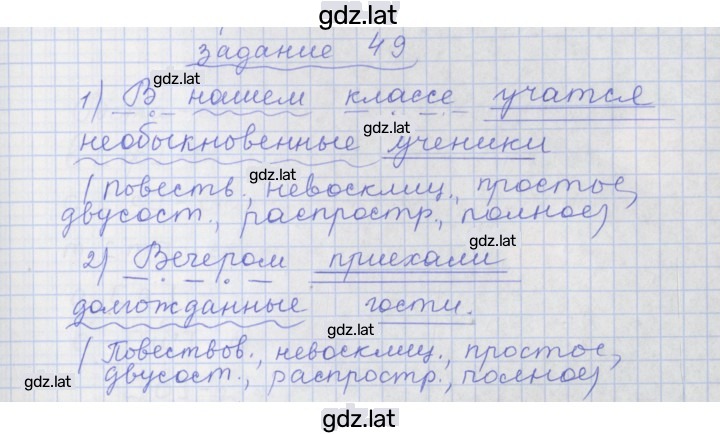 gdz.lat
задание 49
gdz.lat
1) В нашем классе учатся
gdz.lat
необыкновенные ученики
gdz.lat
(повеств., невосклиц., простое,
двусост., распростр., полное)
gdz.lat
2) Вечером приехали
долгожданные гости.
gdz.lat
(Повествов., невосклиц., простое,
двусост., распростр., полное)
gdz.lat
gdz.lat